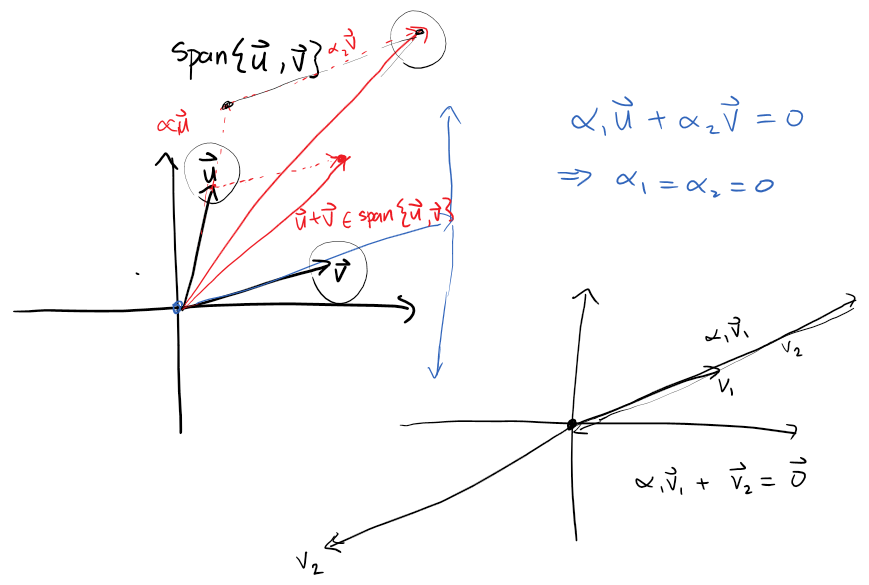 span{u⃗, v⃗}
α₂v⃗
αu⃗
u⃗
u⃗+v⃗ ∈ span{u⃗, v⃗}
v⃗
α₁u⃗ + α₂v⃗ = 0
⇒ α₁ = α₂ = 0
α₁v⃗₁
v₂
v₁
α₁v⃗₁ + v⃗₂ = 0⃗
v₂